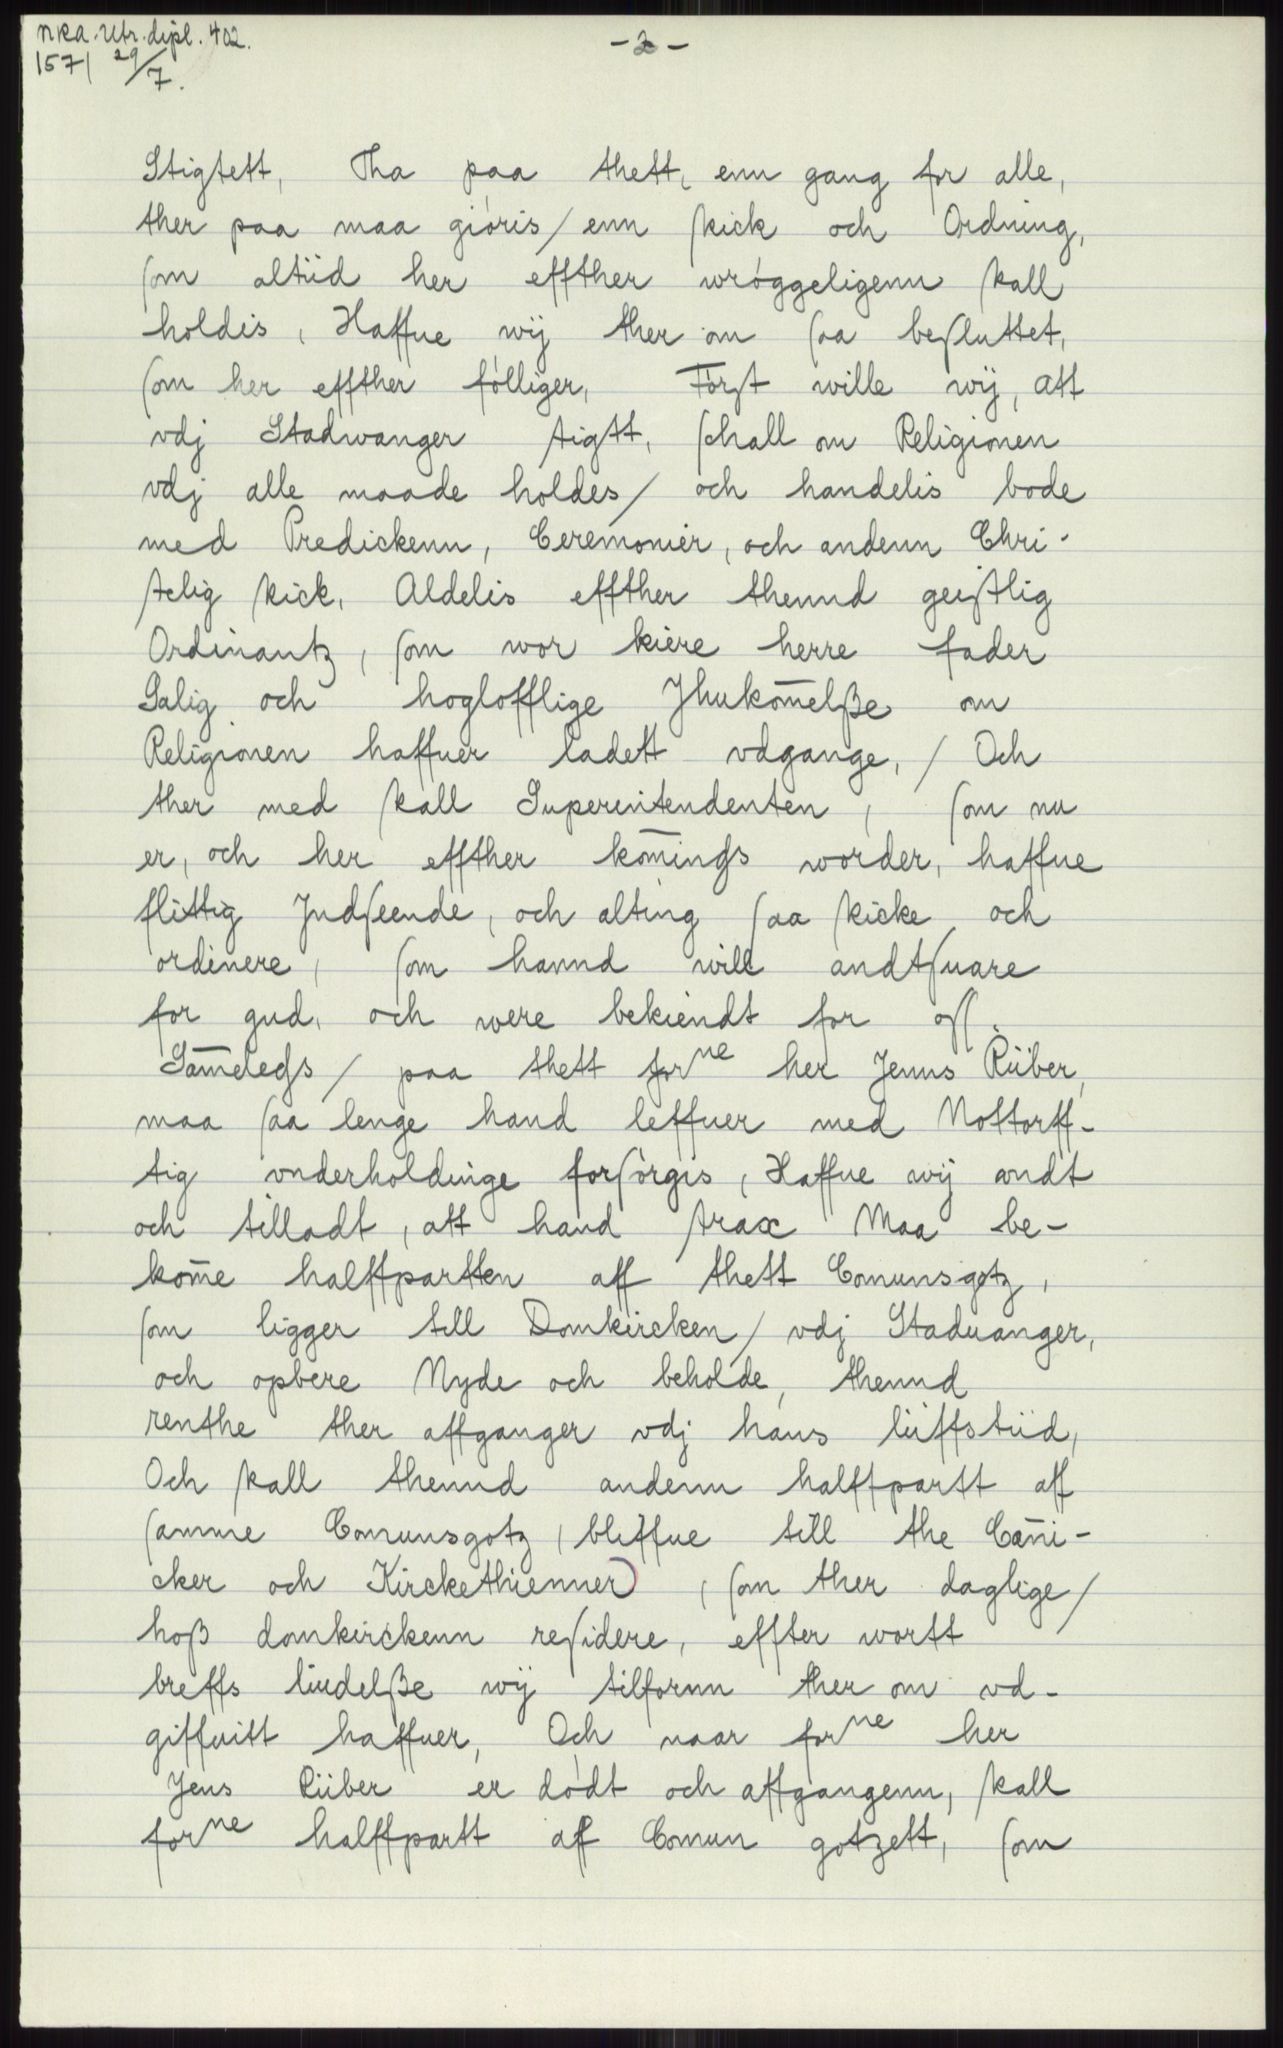 NRA. Utr. dipl. 402.
1571 29/7.
- 2 -
Stigtett, Tha paa thett, enn gang for alle,
ther paa maa giöris/ enn skick och Ordning,
som altiid her effther wröggeligenn skall
holdis, Haffue wij ther om saa besluttet,
som her effther fölliger, Först wille wij, att
vdj Stadwanger stigtt, schall om Religionen
vdj alle maade holdes/ och handelis bode
med Predickenn, Ceremonier, och andenn Chri-
stelig skick, Aldelis effther thennd geistlig
Ordinantz, som wor kiere herre fader
Salig och hoglofflige Jhukom̅elße om
Religionen haffuer ladett vdgange,/ Och
ther med skall Superintendenten, som nu
er, och her effther kom̅inds worder, haffue
flittig Jndseende, och alting saa skicke och
ordinere, som hannd will andtsuare
for gud, och were bekiendt for oss.
Sam̅eleds/ paa thett forne her Jenns Riiber,
maa saa lenge hand leffuer med Nottorff-
tig vnderholdinge forsörgis, Haffue wij wndt
och tilladt, att hand strax Maa be-
kom̅e halffpartten aff thett Comunsgotz,
som ligger till Domkircken/ vdj Staduanger,
och opbere Nyde och beholde, thennd
renthe ther affganger vdj hans liiffstiid,
Och skall thennd andenn halffpartt aff
samme Comunsgotz, bliffue till the Can̅i-
cker och Kirckethienner, som ther daglige/
hoß domkirckenn residere, effter wortt
breffs liudelße wij tilfornn ther om vd-
giffuitt haffuer, Och naar forne her
Jens Riiber er dödt och affgangenn, skall
forne halffpartt aff Comun gotzett, som